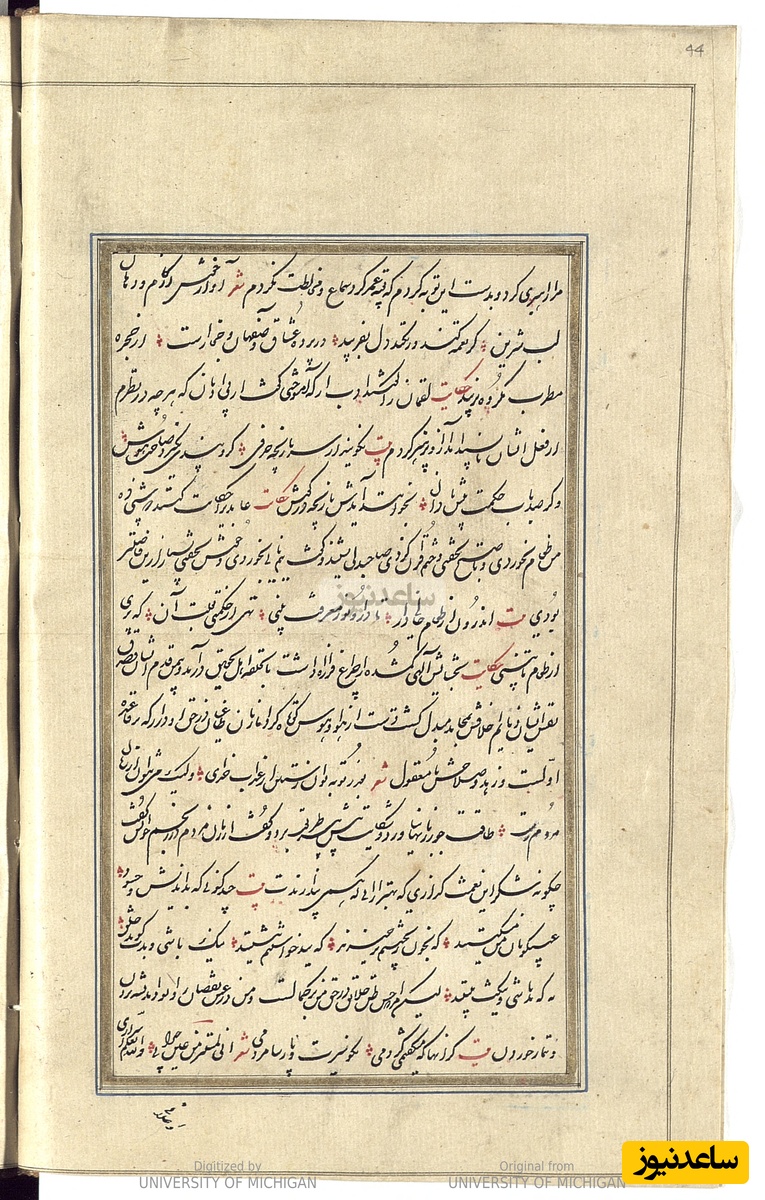 44
مرا رهبری کرد و بدست این توبه کردم که بقیه عمر گرد سماع و مخالطت نگردم شعر آواز خوش از کام و دهان
لب شیرین گر نغمه کند ور نکند دل بفریبد در پرده عشاق و صفهان و حجازست از حنجره
مطرب مکروه نزیبد حکایت لقمان را گفتند ادب از که آموختی گفت از بی ادبان که هر چه در نظرم
از فعل ایشان ناپسند آمد از آن پرهیز کردم بیت نگویند از سر بازیچه حرفی کزو پندی نگیرد صاحب هوش
و گر صد باب حکمت پیش نادان بخوانند آیدش بازیچه در گوش حکایت عابدی را حکایت کنند در شبی ده
من طعام بخوردی و تا صبح نخفتی و ختم قرآن کردی صاحبدلی شنید و گفت نیم نانی بخوردی و خوش بخفتی بسیار ازین فاضلتر
بودی بیت اندرون از طعام خالی دار تا درو نور معرفت بینی تهی از حکمتی بعلت آن که پری
از طعام تا بینی حکایت بخشایش الهی گمشده را چراغ فرا راه داشت تا بحلقه اهل تحقیق درآمد و بیمن قدم ایشان و صدق
نفس ایشان ذمایم اخلاقش بمحامد مبدل گشت دست از هوا و هوس کوتاه کرد و زبان طاعنان در حق او دراز که بر قاعده
اولست و زهد و صلاحش نامعقول شعر بعذر توبه توان رستن از عذاب خدای ولیک می نتوان از زبان
مردم رست طاقت جور زبانها نیاورد و شکایت پیش پیر طریقت برد و گفت از زبان مردم در رنجم جوابش گفت
چگونه شکر این نعمت گزاری که بهتر از آنی که همی پندارندت بیت چند گوئی که بداندیش و حسود
عیبگویان من مسکینند گه بخون ریختنم برخیزند گه ببد خواستنم بنشینند نیک باشی و بدت گوید خلق
به که بد باشی و نیکت بینند لیکن مرا حسن ظن خلایق در حق من بر کمالست و من در عین نقصان روا بود اندیشه بردن
و تیمار خوردن بیت گر آنها که میگفتمی کردمی نکو سیرت و پارسا مردمی شعر انی لمستتر من عین جیرانی والله یعلم اسراری
و اعلانی
ساعدنیوز
ساعدنیوز
Digitized by
UNIVERSITY OF MICHIGAN
Original from
UNIVERSITY OF MICHIGAN